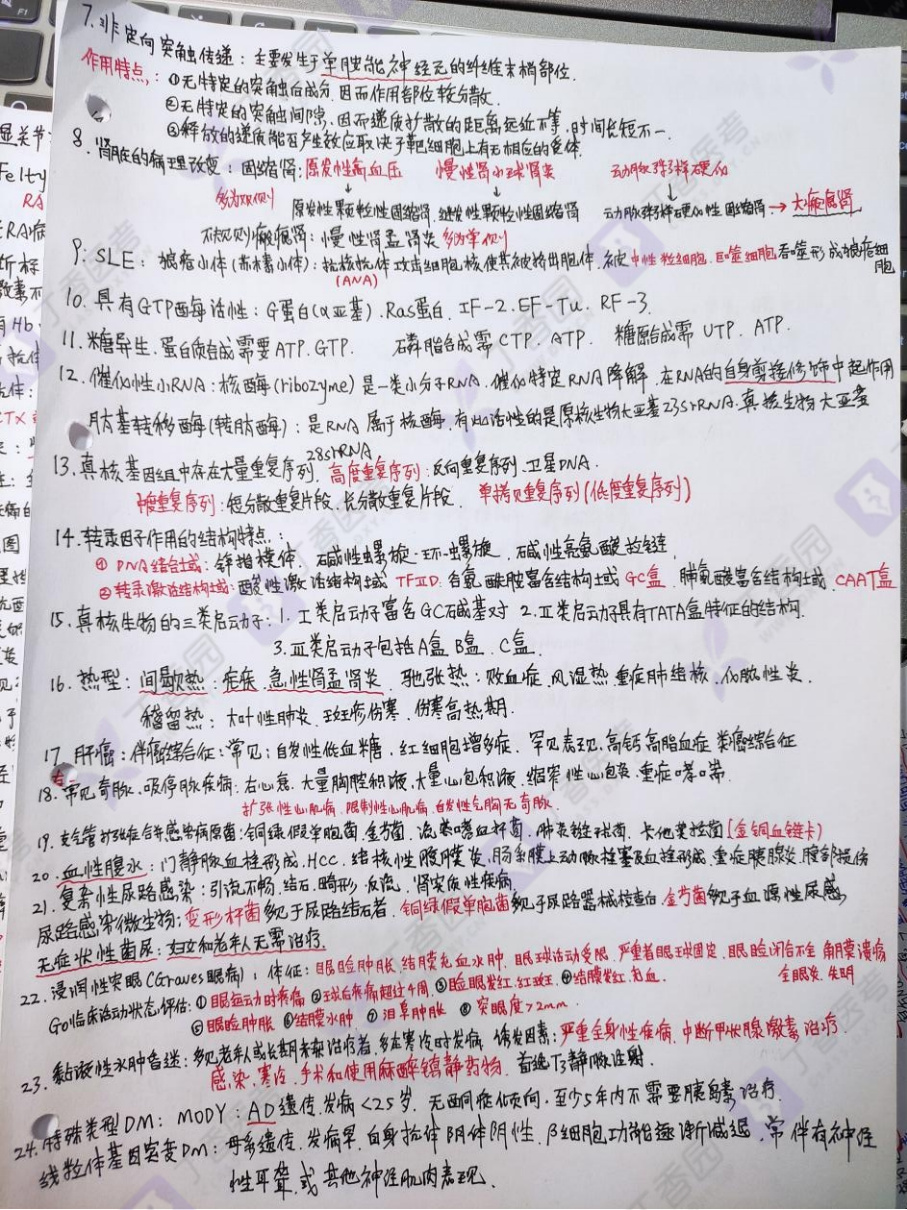 7.非定向突触传递：主要发生于单胺能神经元的纤维末梢部位.
作用特点：①无特定的突触后成分.因而作用部位较分散.
②无特定的突触间隙.因而递质扩散的距离远近不等.时间长短不一.
③释放的递质能否产生效应取决于靶细胞上有无相应的受体.
8.肾脏的病理改变：固缩肾：原发性高血压 慢性肾小球肾炎 动脉粥样硬化
多为双侧 ↓ ↓ ↓
原发性颗粒性固缩肾.继发性颗粒性固缩肾 动脉粥样硬化性固缩肾→大瘢痕肾
不规则瘢痕肾：慢性肾盂肾炎 多为单侧
9.SLE：狼疮小体(苏木素小体)：抗核抗体攻击细胞核使其被挤出胞体.被中性粒细胞.巨噬细胞吞噬形成狼疮细胞
(ANA)
10.具有GTP酶活性：G蛋白(α亚基).Ras蛋白.IF-2.EF-Tu.RF-3.
11.糖异生.蛋白质合成需要ATP.GTP. 磷脂合成需CTP.ATP. 糖原合成需UTP.ATP.
12.催化性小RNA：核酶(ribozyme)是一类小分子RNA.催化特定RNA降解.在RNA的自身剪接修饰中起作用
肽基转移酶(转肽酶)：是RNA属于核酶.有此活性的是原核生物大亚基23SrRNA.真核生物大亚基
28SrRNA
13.真核基因组中存在大量重复序列.高度重复序列：反向重复序列.卫星DNA.
中度重复序列：短分散重复片段.长分散重复片段. 单拷贝重复序列(低度重复序列)
14.转录因子作用的结构特点：
①DNA结合域：锌指模体.碱性螺旋-环-螺旋.碱性亮氨酸拉链.
②转录激活结构域：酸性激活结构域 TFⅡD.谷氨酰胺富含结构域 GC盒.脯氨酸富含结构域 CAAT盒
15.真核生物的三类启动子：1.Ⅰ类启动子富含GC碱基对 2.Ⅱ类启动子具有TATA盒特征的结构.
3.Ⅲ类启动子包括A盒.B盒.C盒.
16.热型：间歇热：疟疾.急性肾盂肾炎. 驰张热：败血症.风湿热.重症肺结核.化脓性炎.
稽留热：大叶性肺炎.斑疹伤寒.伤寒高热期.
17.肝癌：伴癌综合征：常见：自发性低血糖.红细胞增多症. 罕见表现.高钙.高脂血症.类癌综合征
18.常见奇脉.吸停脉疾病：右心衰.大量胸腔积液.大量心包积液.缩窄性心包炎.重症哮喘.
扩张性心肌病.限制性心肌病.自发性气胸无奇脉.
19.支气管扩张症合并感染病原菌：铜绿假单胞菌.金葡菌.流感嗜血杆菌.肺炎链球菌.卡他莫拉菌(金铜血链卡)
20.血性腹水：门静脉血栓形成.HCC.结核性腹膜炎.肠系膜上动脉栓塞及血栓形成.重症胰腺炎.腹部损伤
21.复杂性尿路感染：引流不畅.结石.畸形.反流.肾实质性疾病.
尿路感染微生物：变形杆菌多见于尿路结石者.铜绿假单胞菌多见于尿路器械检查后.金葡菌多见于血源性尿感.
无症状性菌尿：妇女和老年人无需治疗.
22.浸润性突眼(Graves眼病)：体征：眼睑肿胀.结膜充血水肿.眼球活动受限.严重者眼球固定.眼睑闭合不全.角膜溃疡
全眼炎.失明
GO临床活动状态评估：①眼运动时疼痛②球后疼痛超过4周.③眼睑发红.红斑.④结膜发红.充血.
⑤眼睑肿胀 ⑥结膜水肿 ⑦泪阜肿胀 ⑧突眼度>2mm.
23.黏液性水肿昏迷：多见老年人或长期未获治疗者.多在寒冷时发病.诱发因素：严重全身性疾病.中断甲状腺激素治疗.
感染.寒冷.手术和使用麻醉镇静药物. 首选T3静脉注射
24.特殊类型DM：MODY：AD遗传.发病<25岁.无酮症倾向.至少5年内不需要胰岛素治疗.
线粒体基因突变DM：母系遗传.发病早.自身抗体阴体阴性.β细胞功能逐渐减退.常伴有神经
性耳聋.或其他神经肌肉表现.